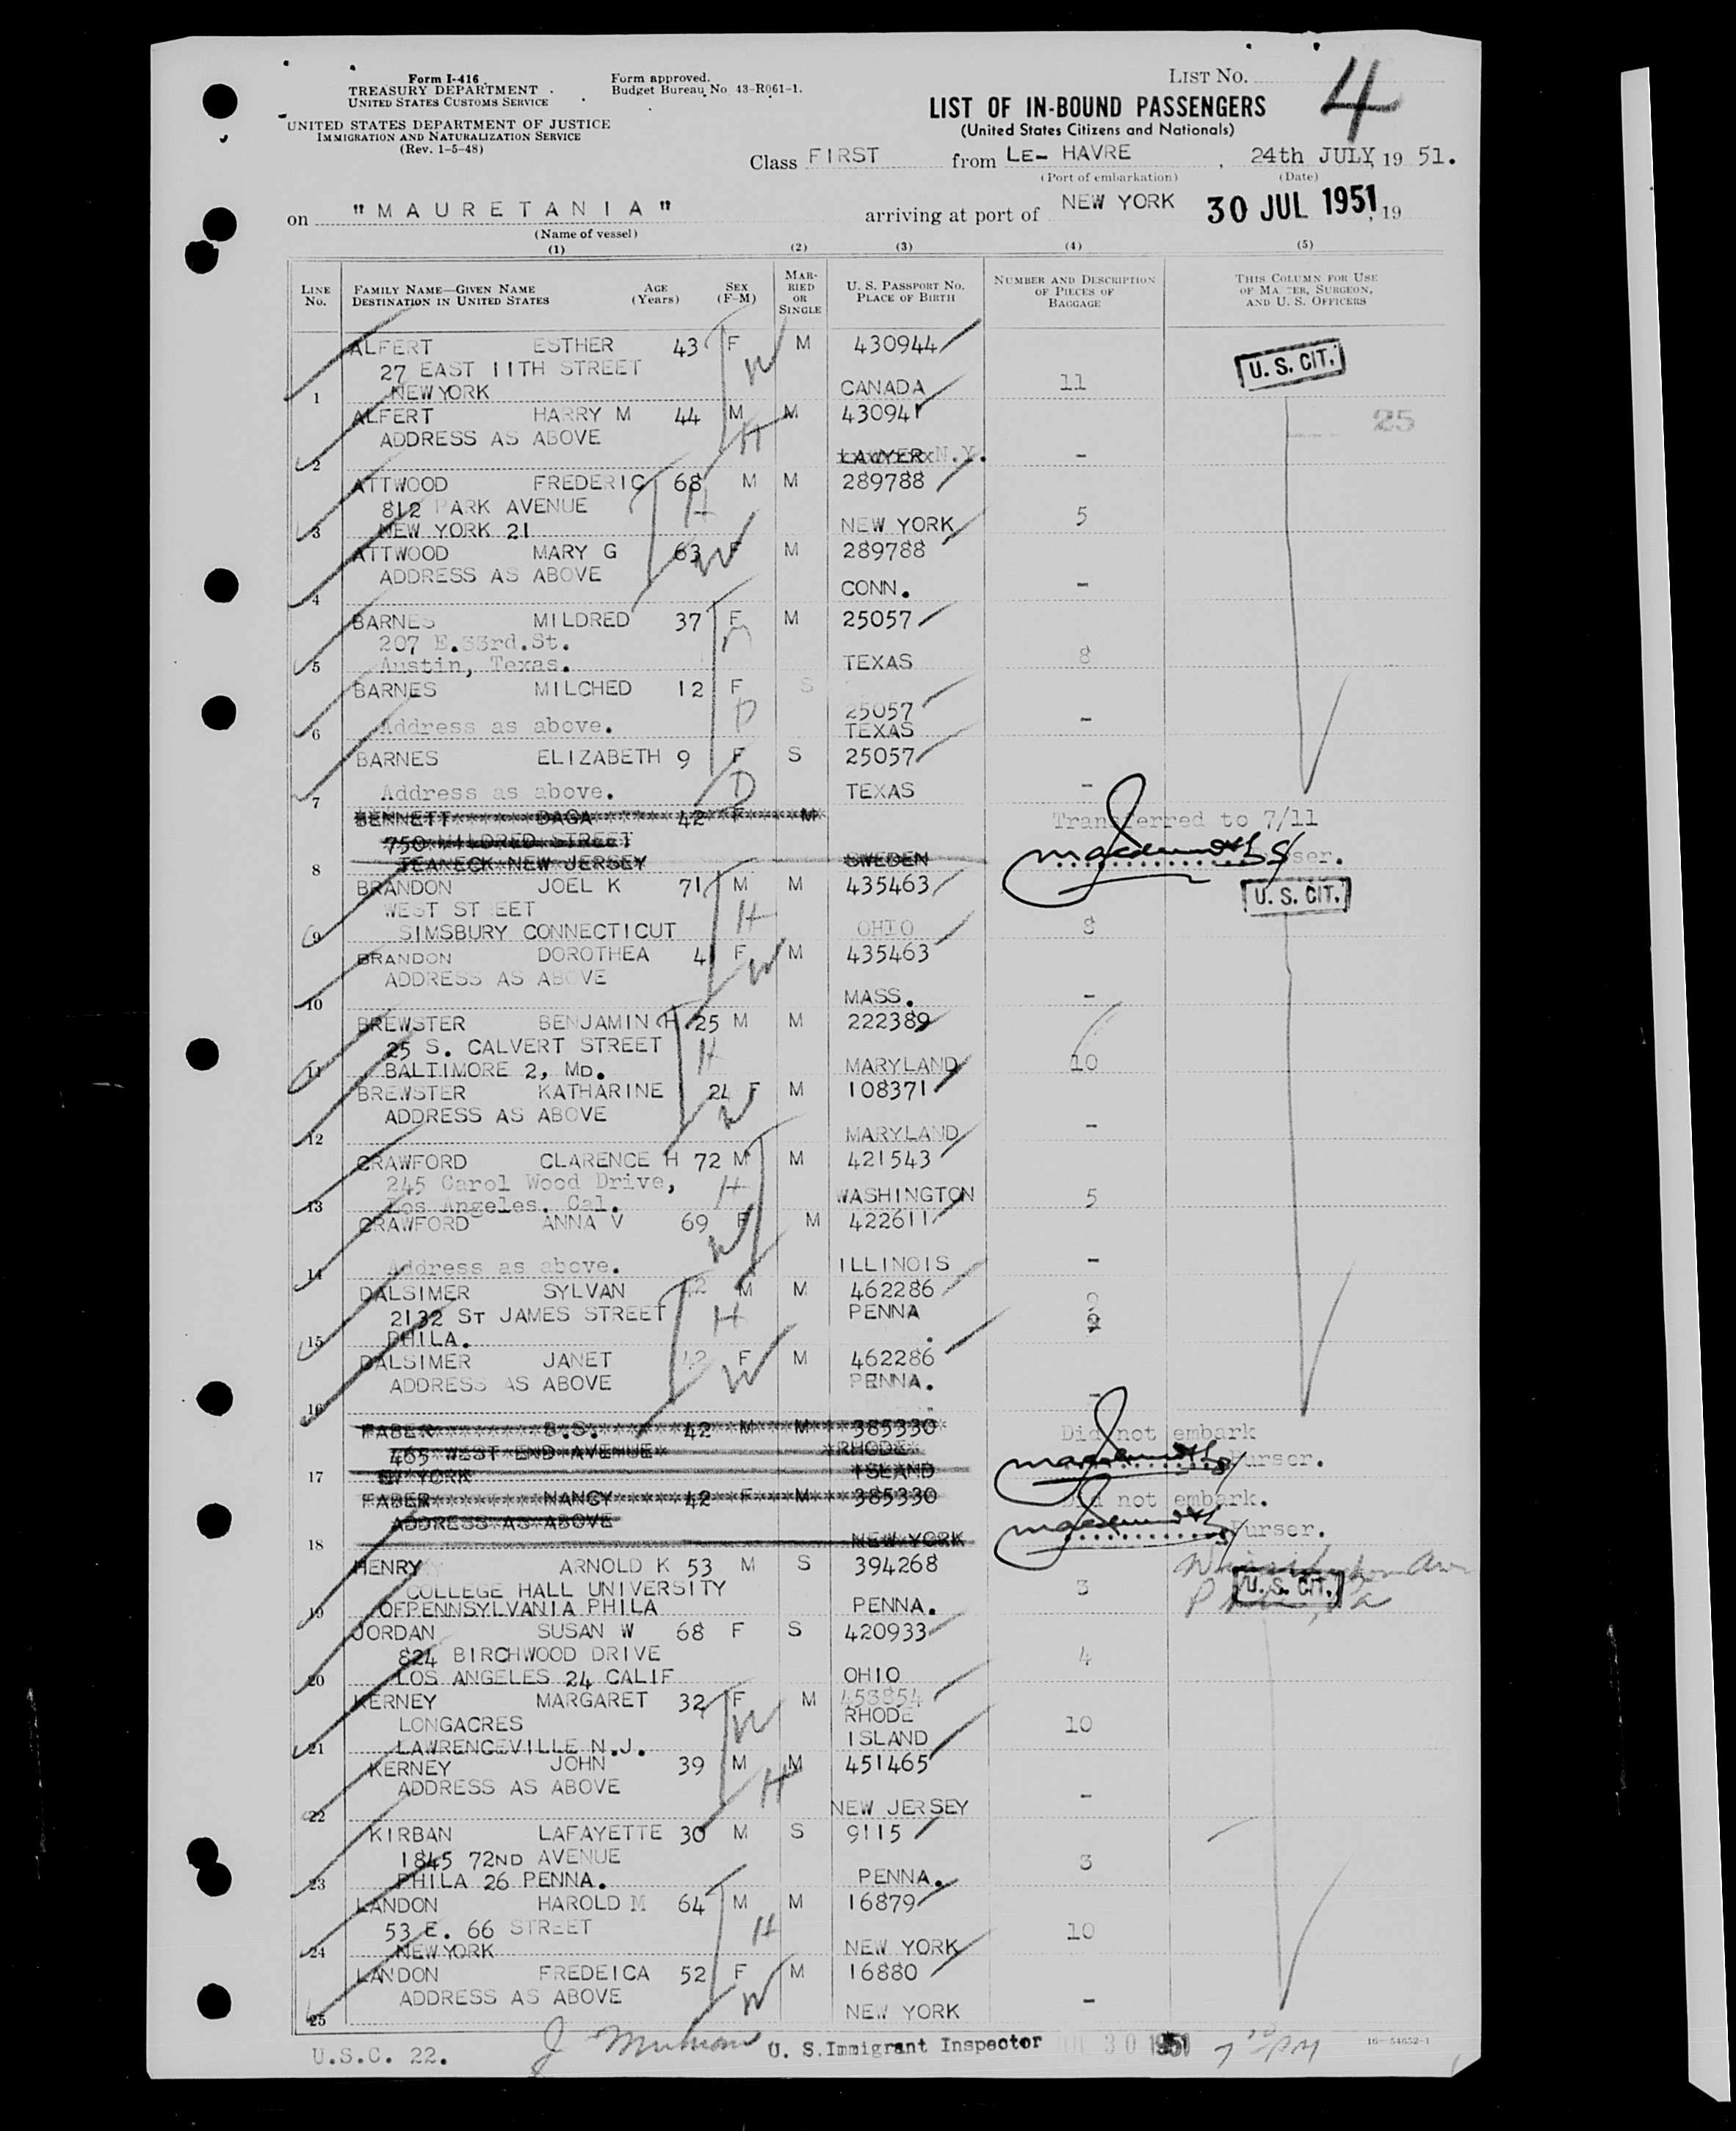 Form I-416
TREASURY DEPARTMENT
UNITED STATES CUSTOMS SERVICE
Form approved.
Budget Bureau No. 43-R061-1.
LIST NO. 4
UNITED STATES DEPARTMENT OF JUSTICE
IMMIGRATION AND NATURALIZATION SERVICE
(Rev. 1-5-48)
LIST OF IN-BOUND PASSENGERS
(United States Citizens and Nationals)
Class FIRST from LE- HAVRE, 24th JULY, 19 51.
(Port of embarkation) (Date)
on "MAURETANIA" arriving at port of NEW YORK 30 JUL 1951, 19
(Name of vessel)
(1) (2) (3) (4) (5)
LINE No. FAMILY NAME—GIVEN NAME DESTINATION IN UNITED STATES AGE (Years) SEX (F-M) MARRIED OR SINGLE U. S. PASSPORT NO. PLACE OF BIRTH NUMBER AND DESCRIPTION OF PIECES OF BAGGAGE THIS COLUMN FOR USE OF MASTER, SURGEON, AND U. S. OFFICERS
ALFERT ESTHER 43 F M 430944
27 EAST 11TH STREET W U. S. CIT.
1 NEW YORK CANADA 11
ALFERT HARRY M 44 M M 430941 25
ADDRESS AS ABOVE H
2 LAWYER N.Y. -
ATTWOOD FREDERIC 68 M M 289788
812 PARK AVENUE H
3 NEW YORK 21 NEW YORK 5
ATTWOOD MARY G 63 F M 289788
ADDRESS AS ABOVE W
4 CONN. -
BARNES MILDRED 37 F M 25057
207 E.33rd.St.
5 Austin, Texas. TEXAS 8
BARNES MILCHED 12 F S
25057
6 Address as above. D TEXAS -
BARNES ELIZABETH 9 F S 25057
7 Address as above. D TEXAS -
BENNETT DAGA 42 F M Transferred to 7/11
750 MILDRED STREET
8 TEANECK NEW JERSEY SWEDEN Purser.
BRANDON JOEL K 71 M M 435463 U. S. CIT.
WEST STREET H
9 SIMSBURY CONNECTICUT OHIO 8
BRANDON DOROTHEA 41 F M 435463
ADDRESS AS ABOVE W
10 MASS. -
BREWSTER BENJAMIN H 25 M M 222389
25 S. CALVERT STREET H
11 BALTIMORE 2, MD. MARYLAND 10
BREWSTER KATHARINE 24 F M 108371
ADDRESS AS ABOVE W
12 MARYLAND -
CRAWFORD CLARENCE H 72 M M 421543
245 Carol Wood Drive, H
13 Los Angeles. Cal. WASHINGTON 5
CRAWFORD ANNA V 69 F M 422611
W
14 Address as above. ILLINOIS -
DALSIMER SYLVAN 42 M M 462286
2132 ST JAMES STREET H PENNA 9
15 PHILA. .
DALSIMER JANET 42 F M 462286
ADDRESS AS ABOVE W PENNA.
16 -
FABER B.S. 42 M M 385330 Did not embark
465 WEST END AVENUE RHODE
17 NEW YORK ISLAND Purser.
FABER NANCY 42 F M 385330 Did not embark.
ADDRESS AS ABOVE
18 NEW YORK Purser.
HENRY ARNOLD K 53 M S 394268
COLLEGE HALL UNIVERSITY 3 U. S. CIT.
19 OFPENNSYLVANIA PHILA PENNA.
JORDAN SUSAN W 68 F S 420933
824 BIRCHWOOD DRIVE 4
20 LOS ANGELES 24 CALIF OHIO
KERNEY MARGARET 32 F M 453854
LONGACRES W RHODE 10
21 LAWRENCEVILLE N.J. ISLAND
KERNEY JOHN 39 M M 451465
ADDRESS AS ABOVE H
22 NEW JERSEY -
KIRBAN LAFAYETTE 30 M S 9115
1845 72ND AVENUE 3
23 PHILA 26 PENNA. PENNA.
LANDON HAROLD M 64 M M 16879
53 E. 66 STREET H 10
24 NEW YORK NEW YORK
LANDON FREDEICA 52 F M 16880
ADDRESS AS ABOVE W -
25 NEW YORK
U.S.C. 22. U. S. Immigrant Inspector JUL 30 1951 PM 16-54652-1